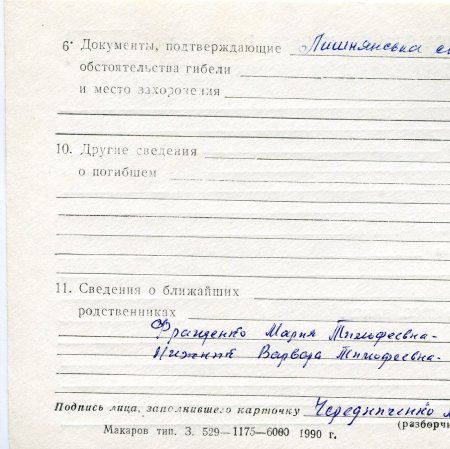 6· Документы, подтверждающие Лишнянська
обстоятельства гибели
и место захоронения
10. Другие сведения
о погибшем
11. Сведения о ближайших
родственниках
Мария Тимофеевна-
Варвара Тимофеевна-
Подпись лица, заполнившего карточку Чередниченко
(разборч
Макаров тип. З. 529—1175—6000 1990 г.